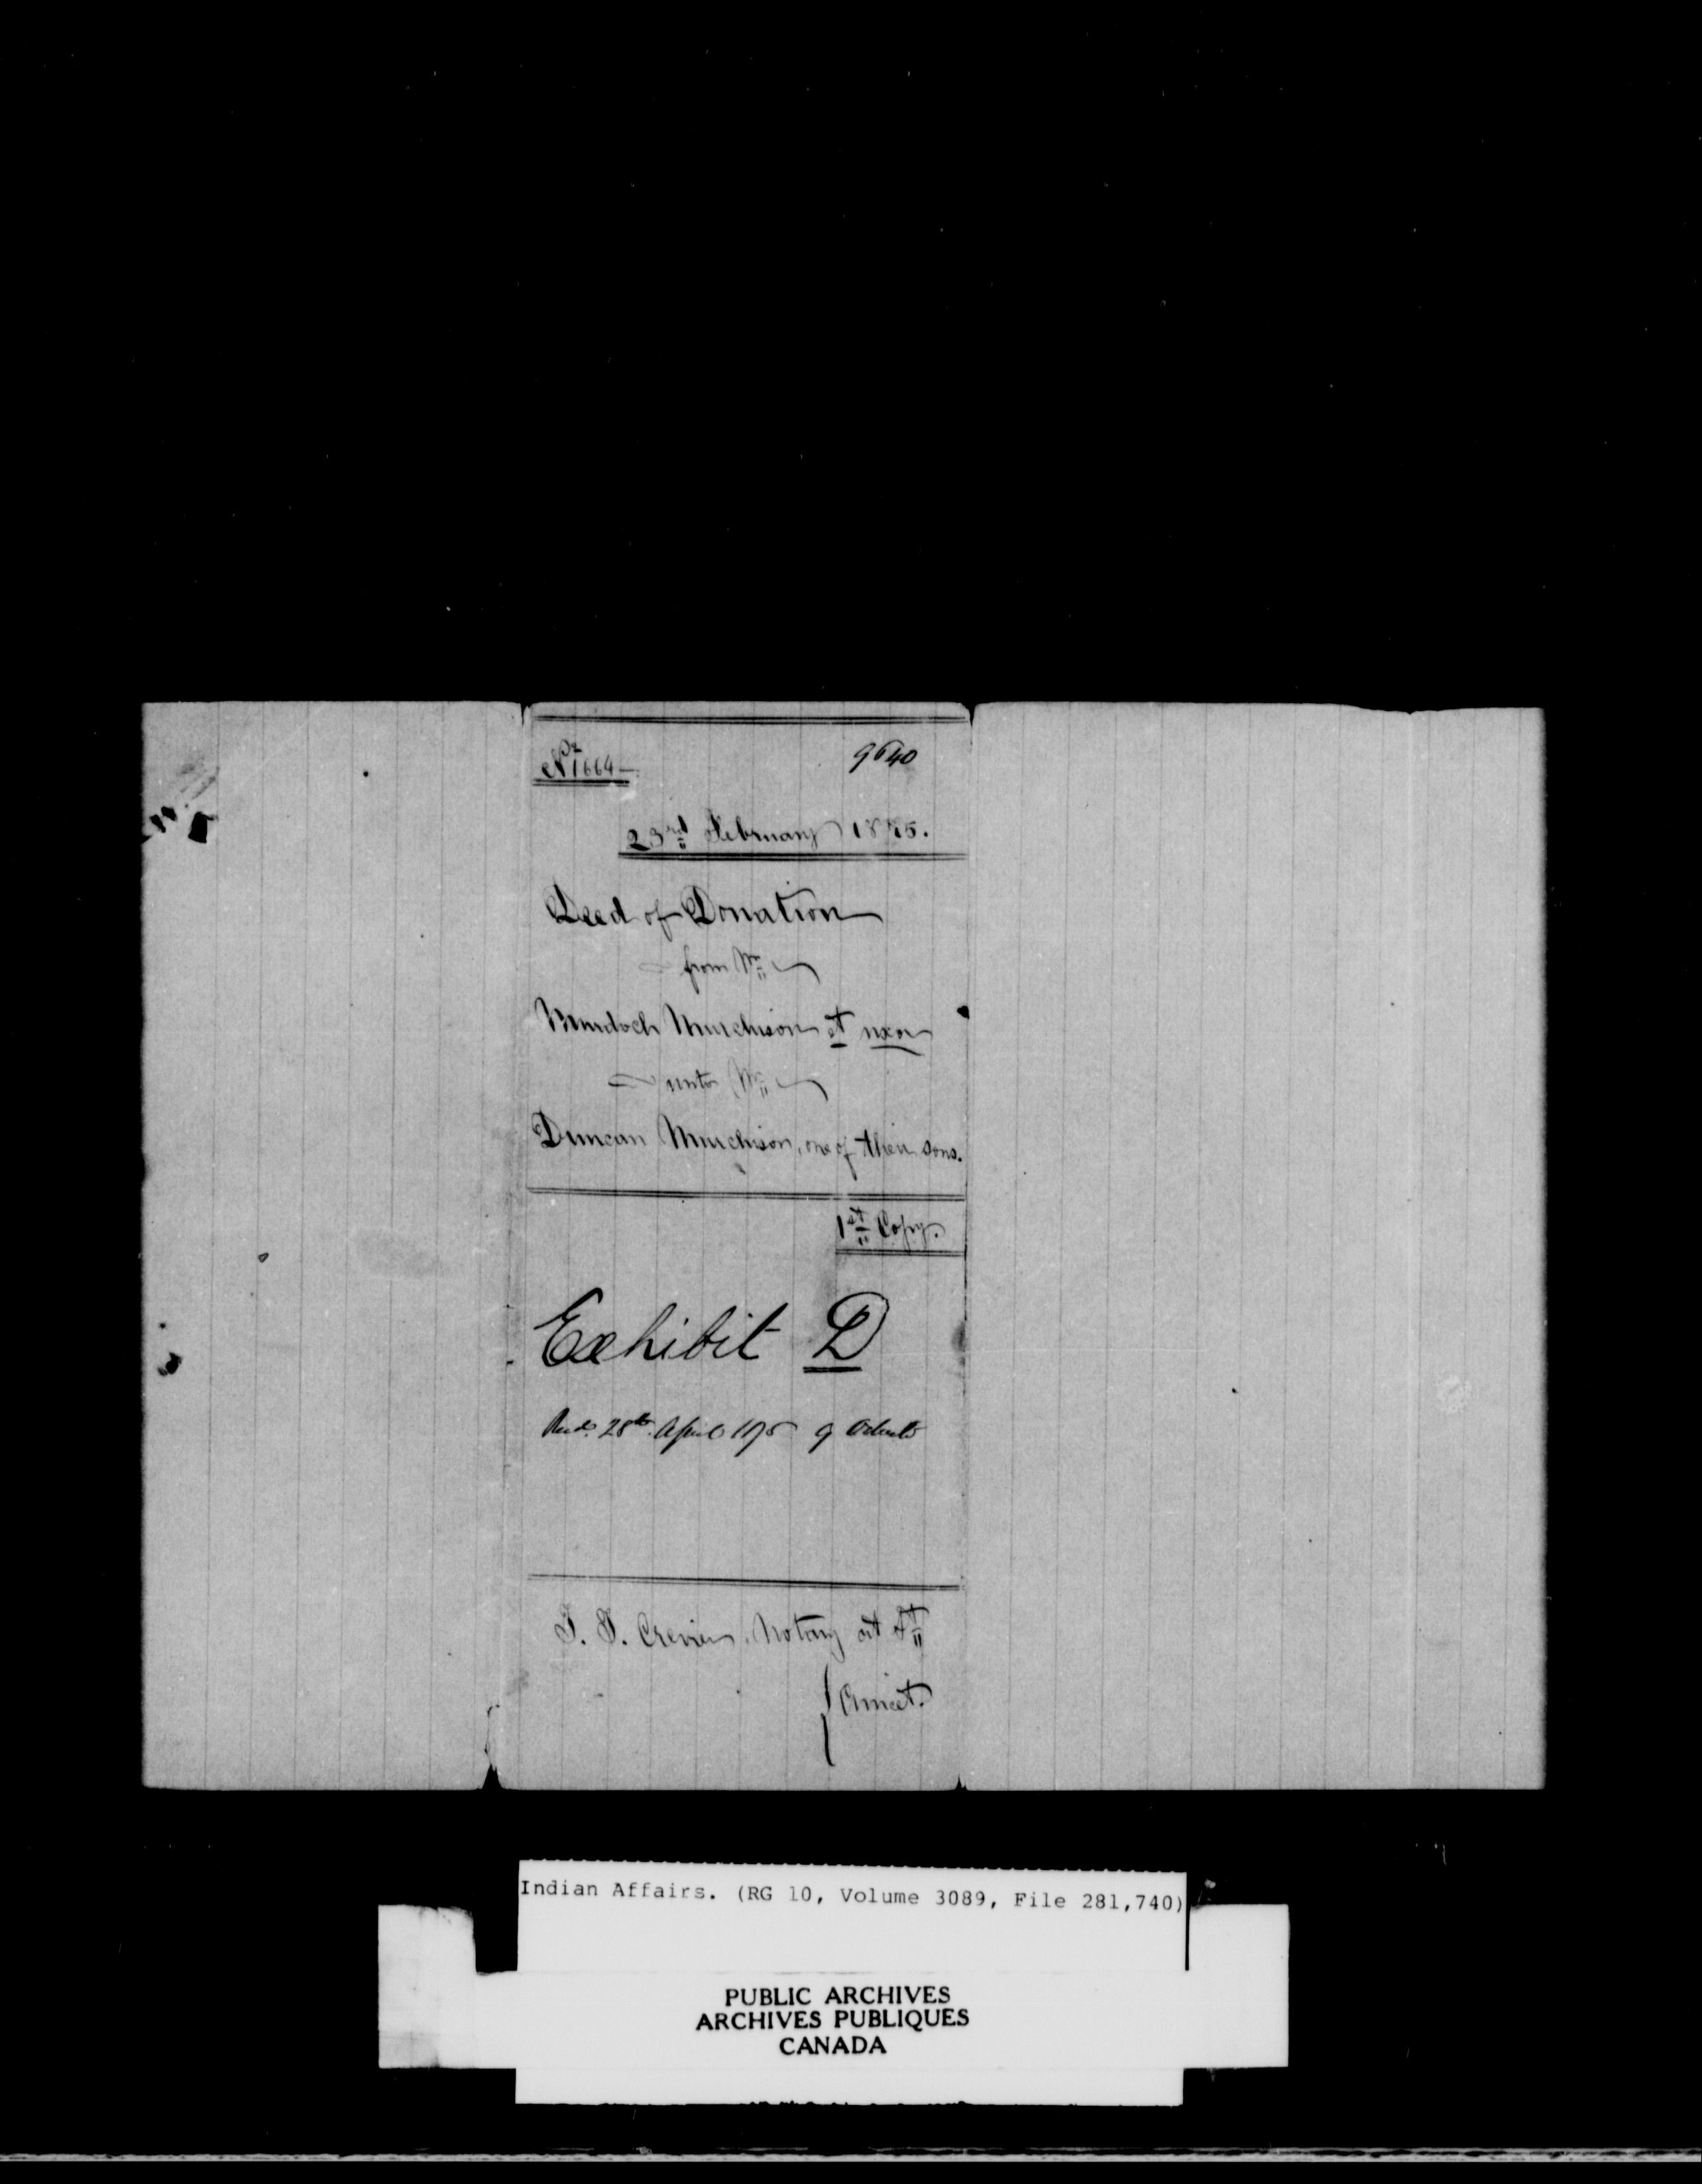 No 1664 — 9640
23rd February 1875.
Deed of Donation
from Mr
Murdoch Murchison et uxor
unto Mr
Duncan Murchison, one of their sons.
1st Copy.
Exhibit D
28th April 1875 9
Crevier, Notary at St
Anicet.
Indian Affairs. (RG 10, Volume 3089, File 281,740)
PUBLIC ARCHIVES
ARCHIVES PUBLIQUES
CANADA